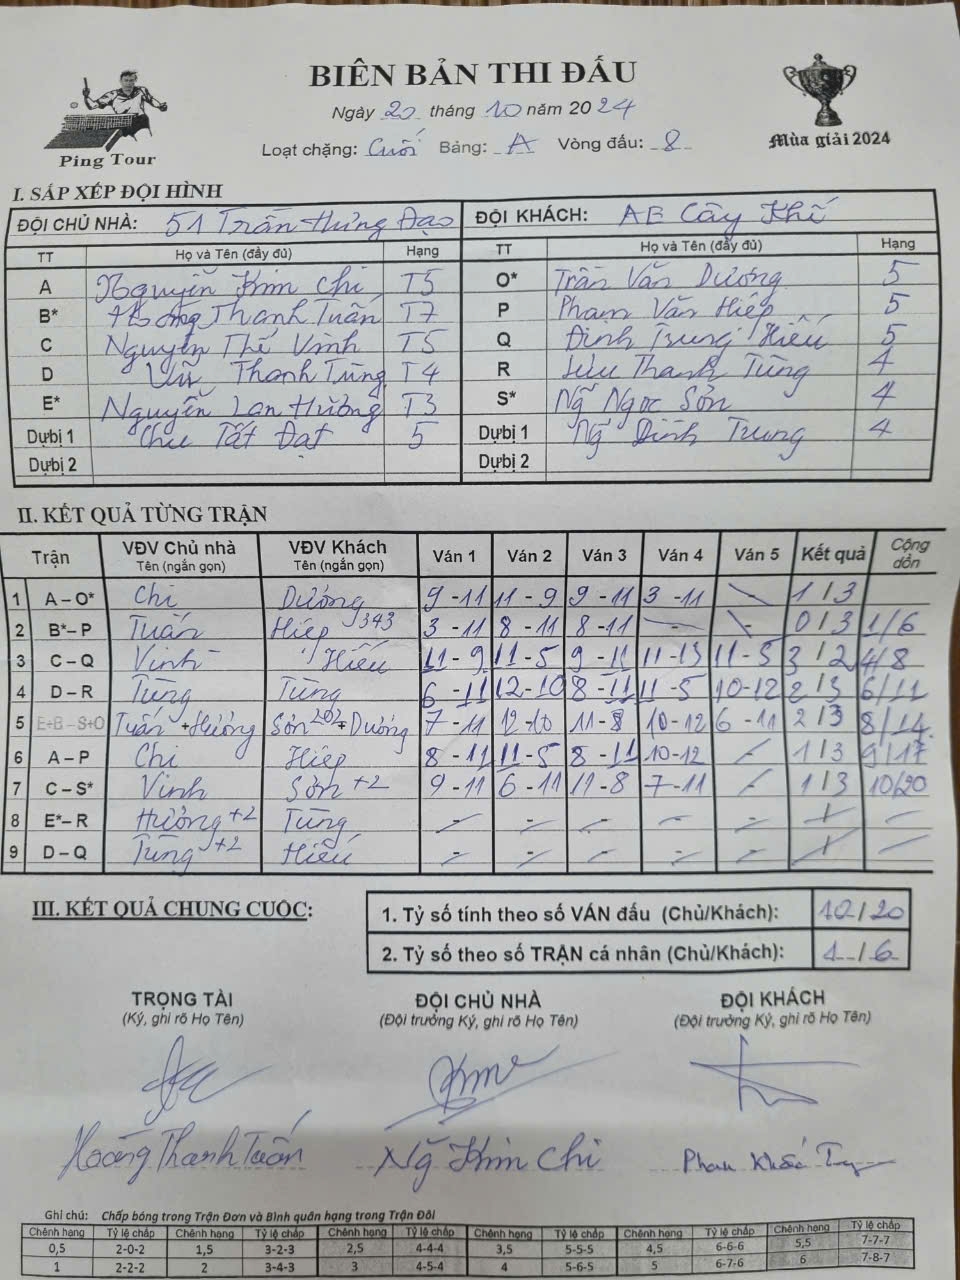 BIÊN BẢN THI ĐẤU
Ngày 20 tháng 10 năm 2024
Loạt chặng: Cuối Bảng: A Vòng đấu: 8
Ping Tour
Mùa giải 2024
I. SẮP XẾP ĐỘI HÌNH
ĐỘI CHỦ NHÀ: 51 Trần Hưng Đạo ĐỘI KHÁCH: AE Cây Khế
TT Họ và Tên (đầy đủ) Hạng TT Họ và Tên (đầy đủ) Hạng
A Nguyễn Kim Chi T5 O* Trần Văn Dương 5
B* Hoàng Thanh Tuấn T7 P Phạm Văn Hiệp 5
C Nguyễn Thế Vinh T5 Q Đinh Trung Hiếu 5
D Vũ Thanh Tùng T4 R Lưu Thanh Tùng 4
E* Nguyễn Lan Hương T3 S* Ng Ngọc Sơn 4
Dự bị 1 Chu Tất Đạt 5 Dự bị 1 Ng Đình Trung 4
Dự bị 2 Dự bị 2
II. KẾT QUẢ TỪNG TRẬN
Trận VĐV Chủ nhà Tên (ngắn gọn) VĐV Khách Tên (ngắn gọn) Ván 1 Ván 2 Ván 3 Ván 4 Ván 5 Kết quả Cộng dồn
1 A – O* Chi Dương 9 - 11 11 - 9 9 - 11 3 - 11 - 1 / 3
2 B* – P Tuấn Hiệp 343 3 - 11 8 - 11 8 - 11 - - 0 / 3 1/6
3 C – Q Vinh Hiếu 11 - 9 11 - 5 9 - 11 11 - 13 11 - 5 3 / 2 4/8
4 D – R Tùng Tùng 6 - 11 12 - 10 8 - 11 11 - 5 10 - 12 2 / 3 6/11
5 E+B – S+O Tuấn + Hương Sơn 202 + Dương 7 - 11 12 - 10 11 - 8 10 - 12 6 - 11 2 / 3 8/14
6 A – P Chi Hiệp 8 - 11 11 - 5 8 - 11 10 - 12 - 1 / 3 9/17
7 C – S* Vinh Sơn +2 9 - 11 6 - 11 11 - 8 7 - 11 - 1 / 3 10/20
8 E* – R Hương +2 Tùng - - - - - /
9 D – Q Tùng +2 Hiếu - - - - - /
III. KẾT QUẢ CHUNG CUỘC:
1. Tỷ số tính theo số VÁN đấu (Chủ/Khách): 10 / 20
2. Tỷ số theo số TRẬN cá nhân (Chủ/Khách): 1 / 6
TRỌNG TÀI ĐỘI CHỦ NHÀ ĐỘI KHÁCH
(Ký, ghi rõ Họ Tên) (Đội trưởng Ký, ghi rõ Họ Tên) (Đội trưởng Ký, ghi rõ Họ Tên)
Hoàng Thanh Tuấn Ng Kim Chi Phan Khắc
Ghi chú: Chấp bóng trong Trận Đơn và Bình quân hạng trong Trận Đôi
Chênh hạng Tỷ lệ chấp Chênh hạng Tỷ lệ chấp Chênh hạng Tỷ lệ chấp Chênh hạng Tỷ lệ chấp Chênh hạng Tỷ lệ chấp Chênh hạng Tỷ lệ chấp
0,5 2-0-2 1,5 3-2-3 2,5 4-4-4 3,5 5-5-5 4,5 6-6-6 5,5 7-7-7
1 2-2-2 2 3-4-3 3 4-5-4 4 5-6-5 5 6-7-6 6 7-8-7